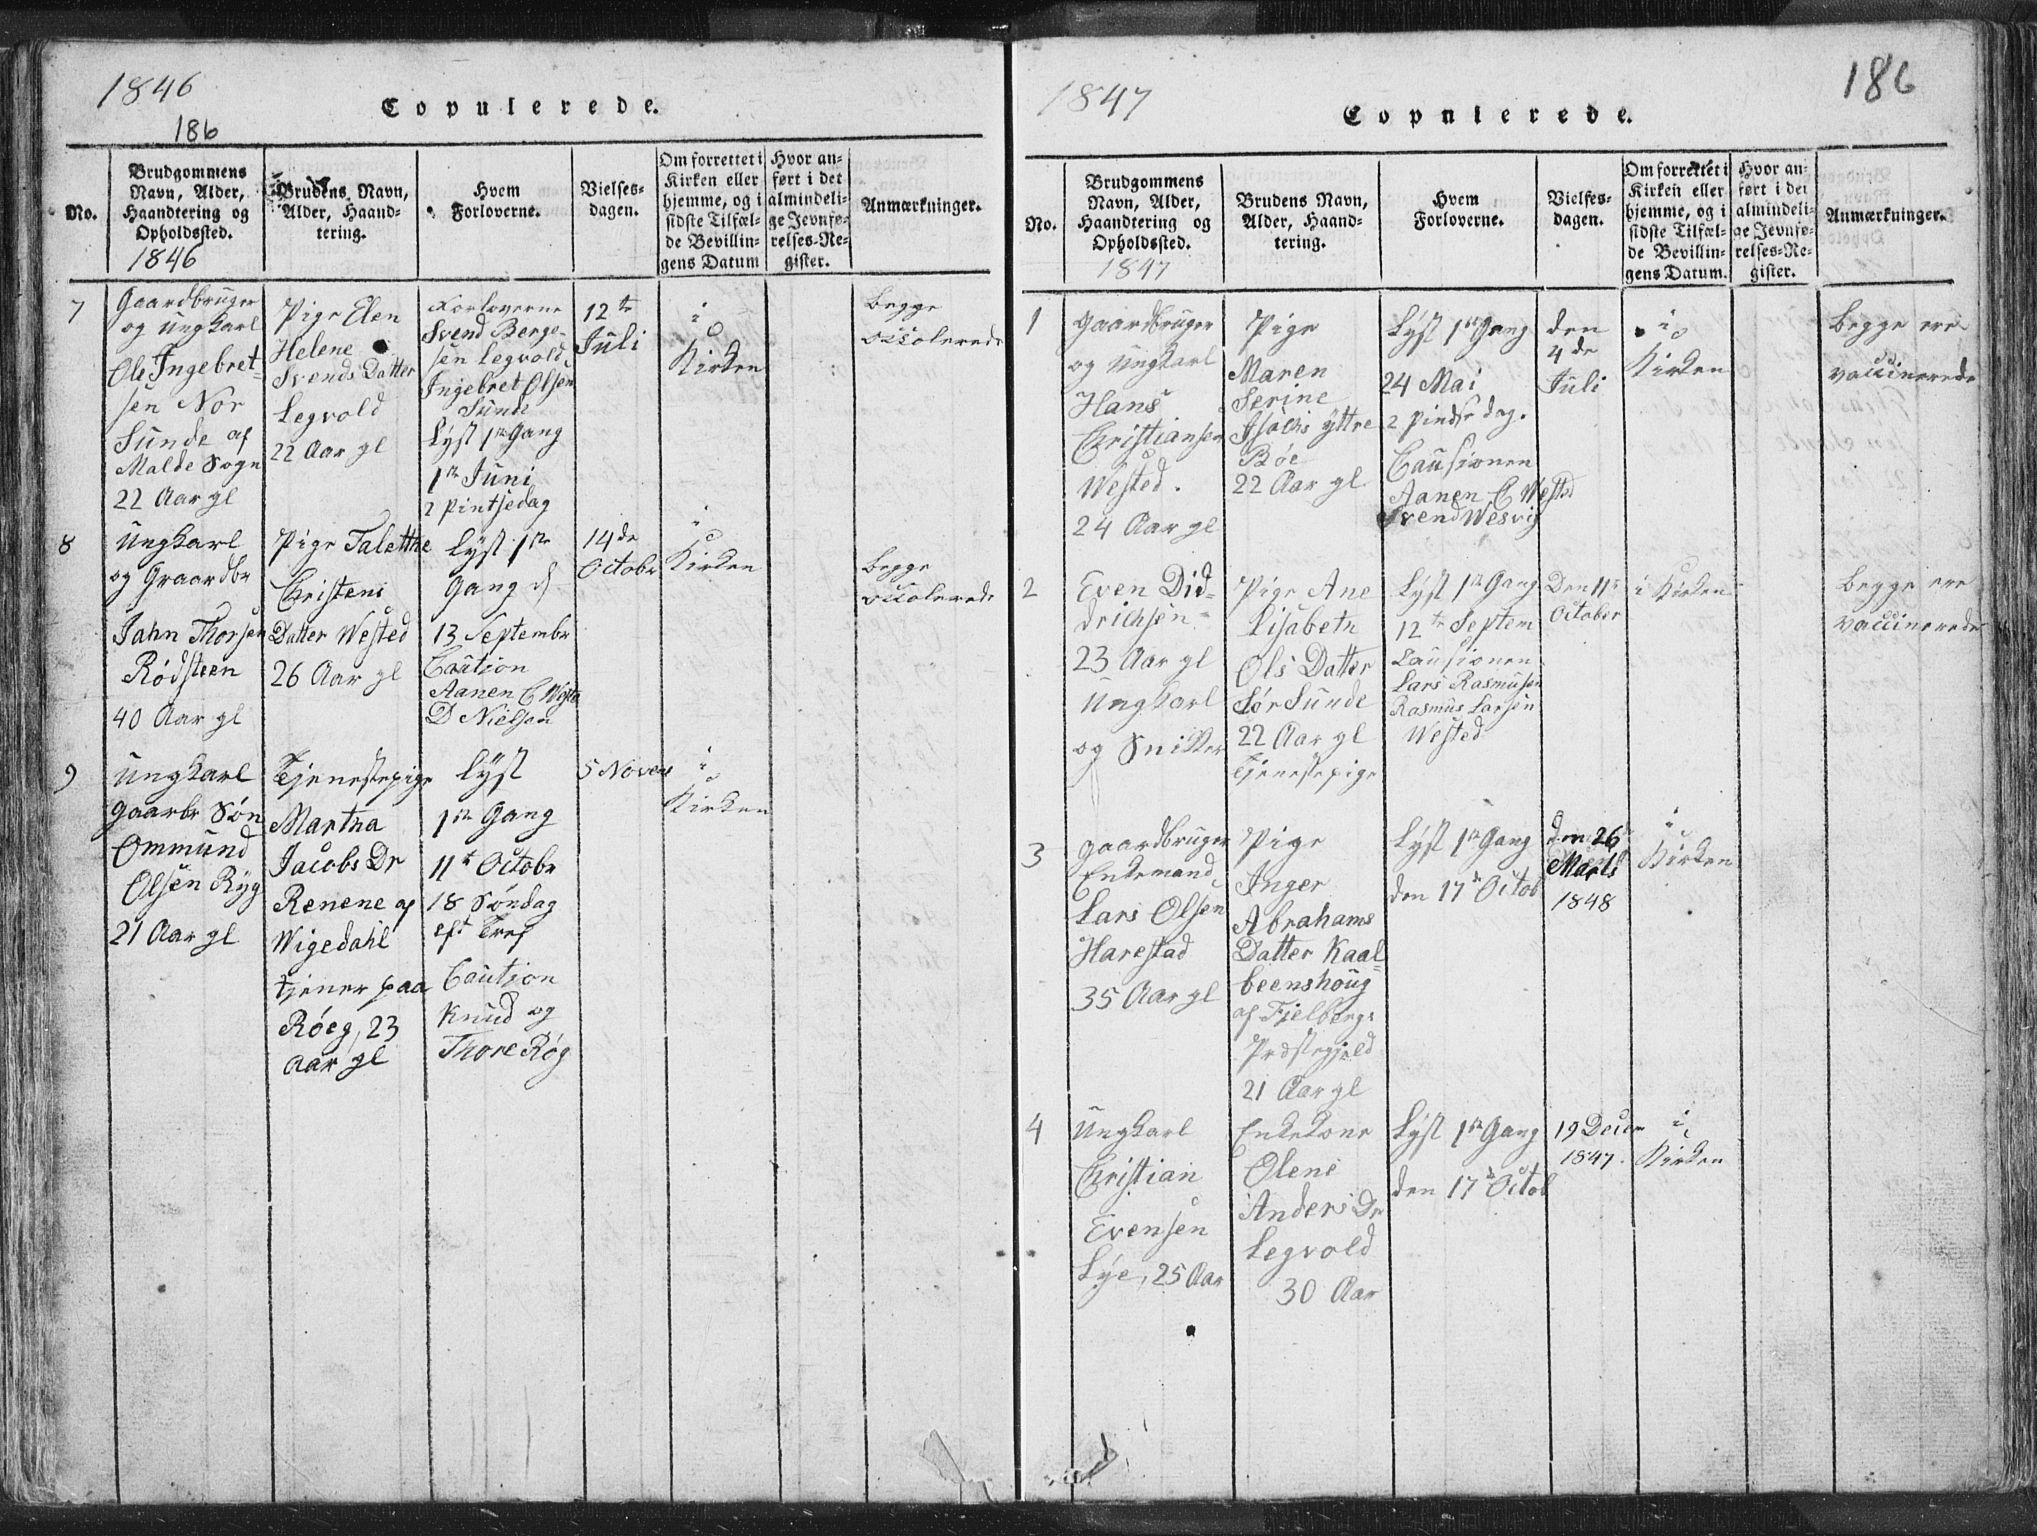 1846
Copulerede.
186
No.
Brudgommens
Navn, Alder,
Haandtering og
Opholdssted.
1846
Brudens Navn,
Alder, Haand-
tering.
Hvem
Forloverne.
Vielses-
dagen.
Om forrettet i
Kirken eller
hjemme, og i
sidste Tilfæl-
de Bevillin-
gens Datum
Hvor an-
ført i det
almindeli-
ge Jevnfø-
relses-Re-
gister.
Anmærkninger.
7
Gaardbruger
og Ungkarl
Ole Ingebret-
sen Nor
Sunde af
Malde Sogn
22 Aar gl
Pige Elen
Helene
Svends Datter
Legvold
22 Aar gl
Forloverne
Svend Berge-
sen Legvold
Ingebret Olsen
Sunde
Lyst 1ste Gang
1ste Juni
2 Pintsedag
12te
Juli
i
Kirken
begge
8
Ungkarl
og Graardbr
Jahn Thorsen
Rødsteen
40 Aar gl
Pige Talethe
Christens
Datter Wested
26 Aar gl
Lyst 1ste
Gang d
13 Septembr
Caution
Aanen C Weste
D Nielsen
14de
Octobr
i
Kirken
begge
9
Ungkarl
Gaarbr Søn
Ommund
Olsen Ryg
21 Aar gl
Tjenestepige
Martha
Jacobs Dr
Renene af
Wigedahl
tjener paa
Røeg, 23
Aar gl
Lyst
1ste Gang
11te Octobr
18 Søndag
eft Tref
Caution
Knud og
Thore Røg
5 Novem
i
Kirken
1847
Copulerede.
186
No.
Brudgommens
Navn, Alder,
Haandtering og
Opholdssted.
1847
Brudens Navn,
Alder, Haand-
tering.
Hvem
Forloverne.
Vielses-
dagen.
Om forrettet i
Kirken eller
hjemme, og i
sidste Tilfæl-
de Bevillin-
gens Datum.
Hvor an-
ført i det
almindeli-
ge Jevnfø-
relses-Re-
gister.
Anmærkninger.
1
Gaardbruger
og Ungkarl
Hans
Christiansen
Wested.
24 Aar gl
Pige
Maren
Serine
Isachs yttre
Bøe
22 Aar gl
Lyst 1ste Gang
24 Mai
2 Pindse dag.
Causionen
Aanen C Wested
Svend Wesvig
den
4de
Juli
i
Kirken
Begge ere
vaccinerede
2
Even Did-
drichsen
23 Aar gl
Ungkarl
og Sniker
Pige Ane
Lisabeth
Ols Datter
Sør Sunde
22 Aar gl
Tjenestepige
Lyst 1ste Gang
12te Septem
Causionen
Lars Rasmusen
Rasmus Larsen
Wested
Den 11te
October
i Kirken
Begge ere
vaccinerede
3
Gaardbruger
Enkemand
Lars Olsen
Harestad
35 Aar gl
Pige
Inger
Abrahams
Datter Kaal-
beenshoug
af Fjelbergs
Præstegjeld
21 Aar gl
Lyst 1ste Gang
den 17de Octob
den 26
Marts
1848
i
Kirken
4
Ungkarl
Christian
Evensen
Lye, 25 Aar
Enkekone
Olene
Anders Dr
Legvold
30 Aar
Lyst 1ste Gang
den 17de Octob
19 Decem
1847.
i
Kirken